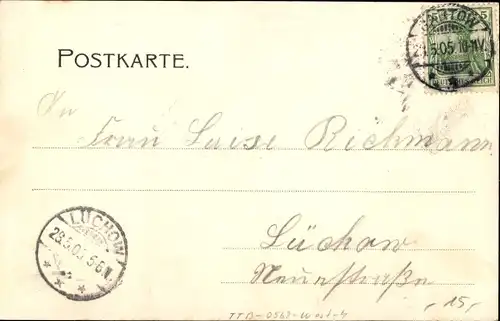 POSTKARTE.
5
An
Frau Luise Richmann
LÜCHOW
28.5.05 5-6N.
Lüchow
Neuestraße
TTB-0568-West-4
15,-